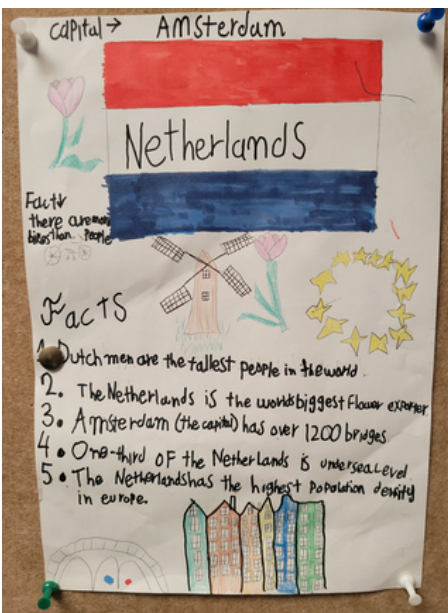 capital → Amsterdam
Netherlands
Facts
there are more
bikes than people
Facts
1. Dutch men are the tallest people in the world.
2. The Netherlands is the worlds biggest flower exporter
3. Amsterdam (the capital) has over 1200 bridges
4. One-third of the Netherlands is under sea level
5. The Netherlands has the highest population density
in europe.